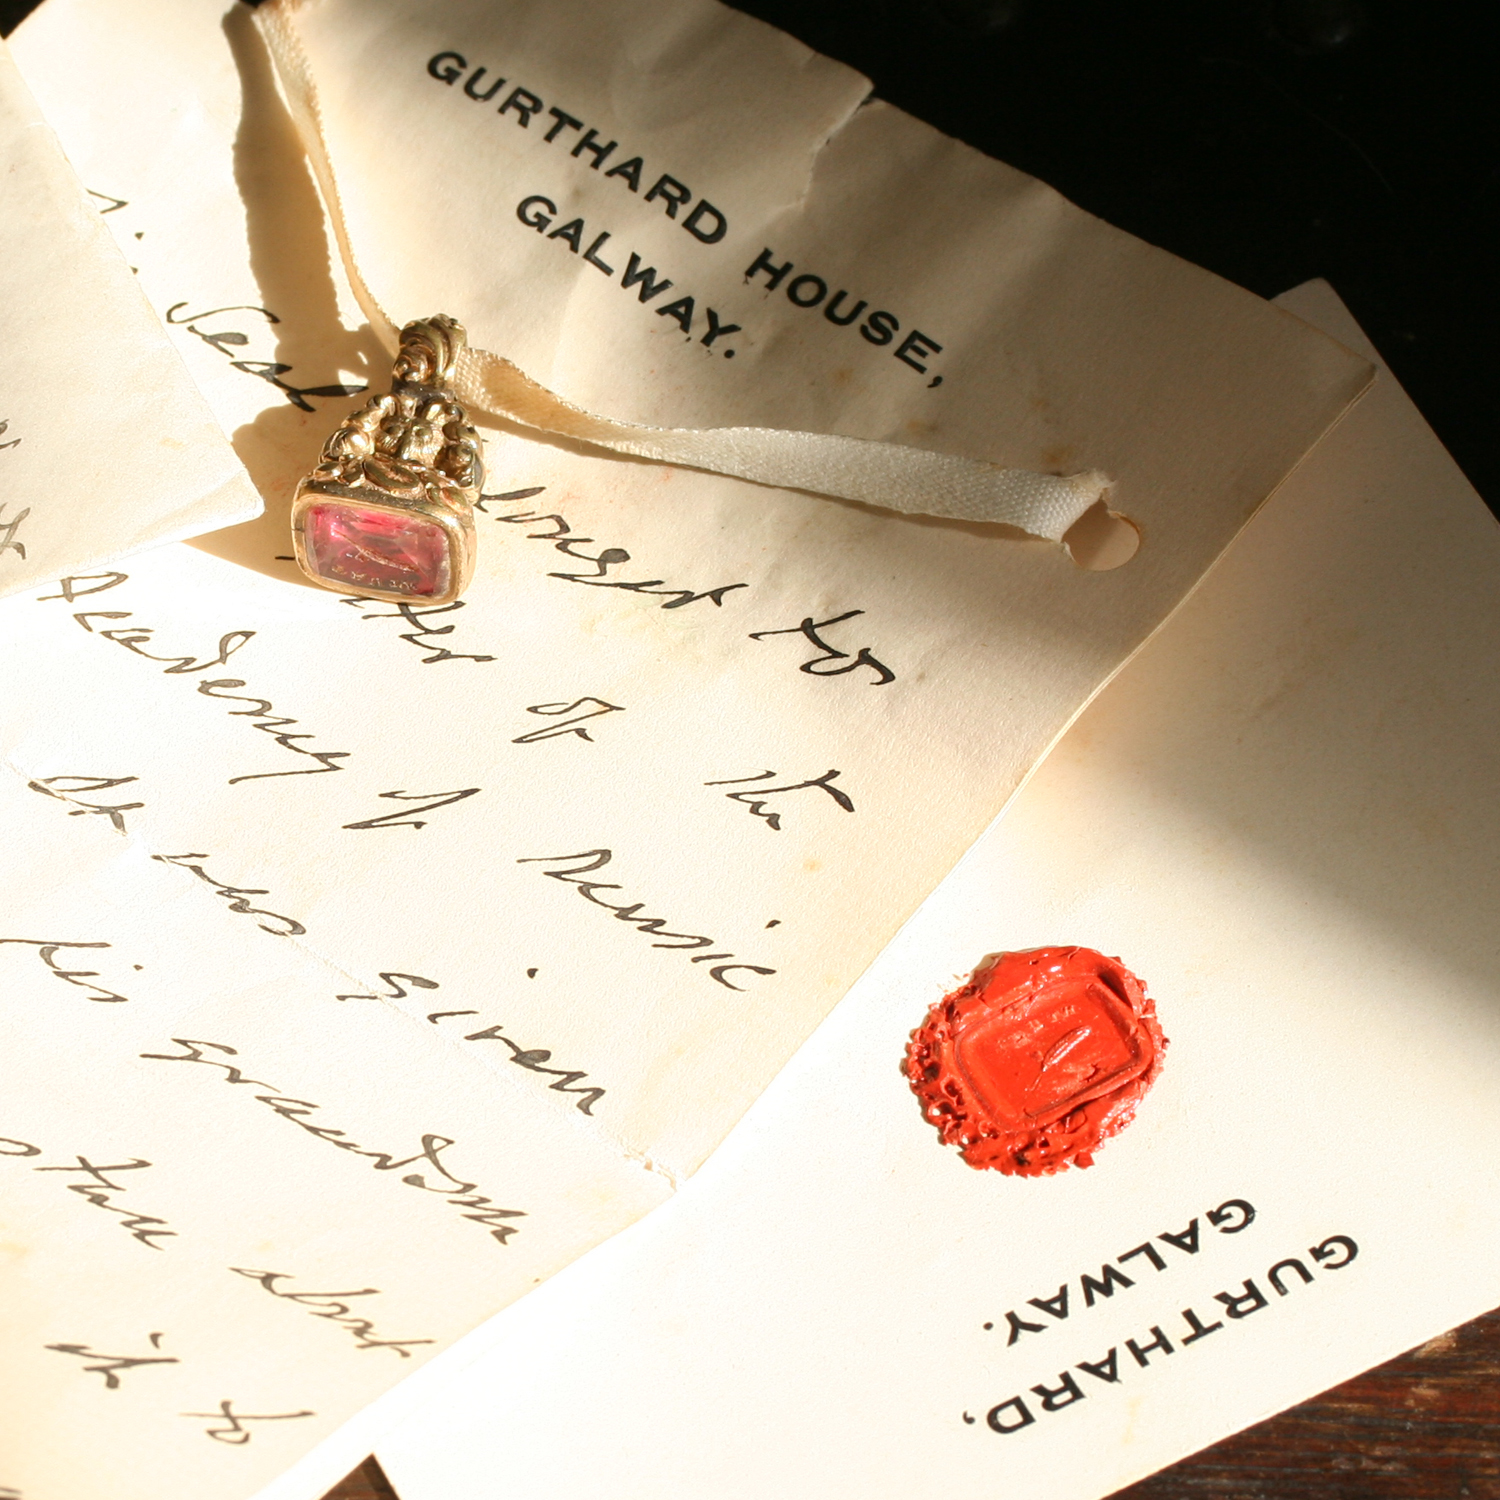 GURTHARD HOUSE,
GALWAY.
Seal
longed to
of the
Academy of Music
It was given
his grandson
it to
GURTHARD,
GALWAY.